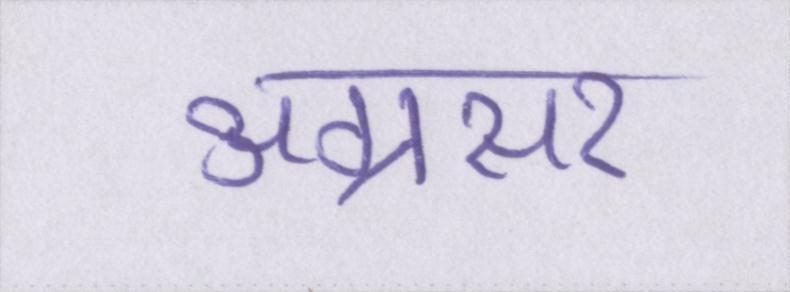 अग्रसर